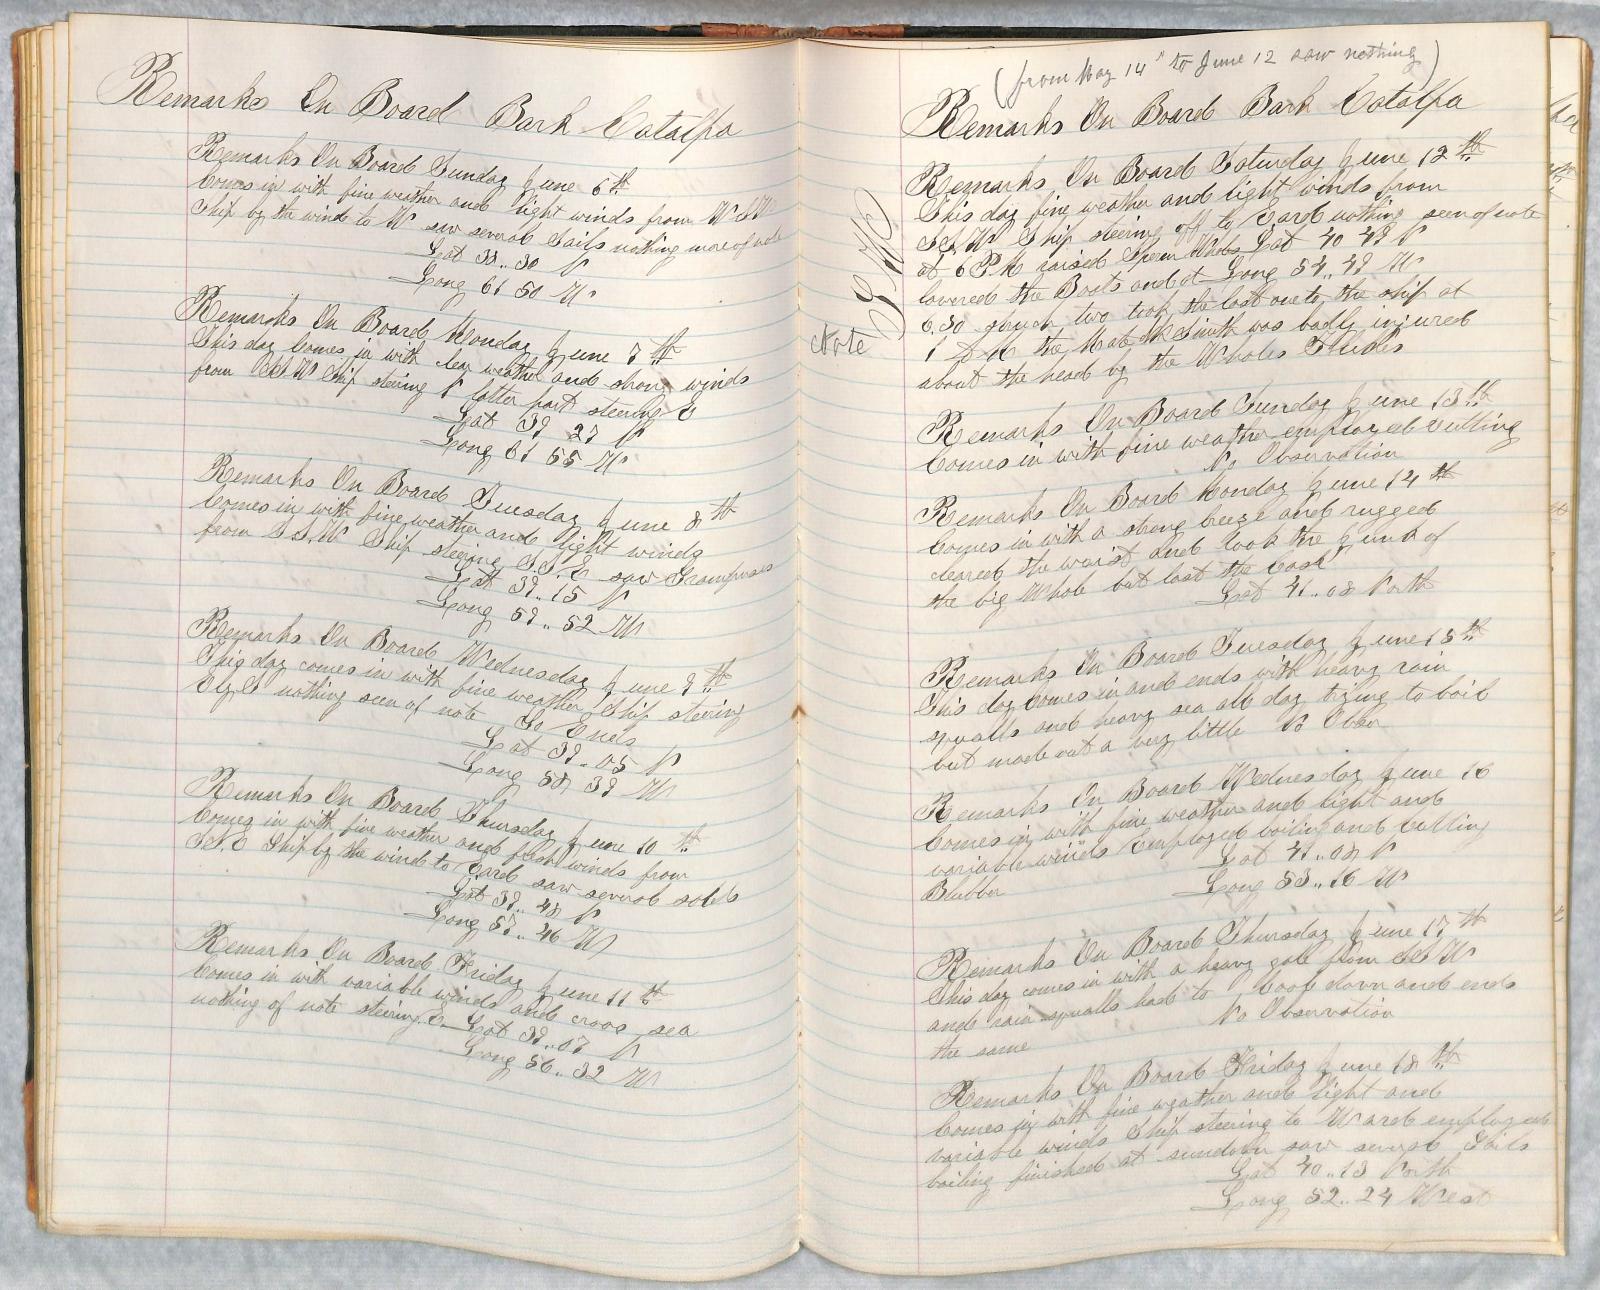 Remarks On Board Bark Catalpa
Remarks On Board Sunday June 6th
Comes in with fine weather and light winds from W S W
Ship by the wind to W saw several Sails nothing more of note
Lat 38..30 N
Long 61 50 W
Remarks On Board Monday June 7th
This day Comes in with clear weather and strong winds
from S S W Ship steering N latter part steering E
Lat 39 27 N
Long 61 55 W
Remarks On Board Tuesday June 8th
Comes in with fine weather and light winds
from S.S.W Ship steering S.S.E saw Grampuses
Lat 39..15 N
Long 59..52 W
Remarks On Board Wednesday June 9th
This day comes in with fine weather Ship steering
E by S nothing seen of note So Ends
Lat 39..05 N
Long 58 39 W
Remarks On Board Thursday June 10th
Comes in with fine weather and fresh winds from
S.E Ship by the wind to Eard saw several sails
Lat 39..48 N
Long 57..46 W
Remarks On Board Friday June 11th
Comes in with variable winds and cross sea
nothing of note steering E Lat 39..07 N
Long 56..32 W
(from May 14" to June 12 saw nothing)
Remarks On Board Bark Catalpa
Remarks On Board Saturday June 12th
This day fine weather and light winds from
S.S.W Ship steering off to Eard nothing seen of note
at 6 P.M raised Sperm Whales Lat 40 49 N
lowered the Boats and at Long 54..49 W
6.30 struck two took the last one to the ship at
Note
1 A M the Mate Mr Smith was badly injured
about the head by the Whales Flukes
Remarks On Board Sunday June 13th
Comes in with fine weather employed cutting
No Observation
Remarks On Board Monday June 14th
Comes in with a strong breeze and rugged
cleared the waist and took the Junk of
the big Whale but lost the Case
Lat 41..08 North
Remarks On Board Tuesday June 15th
This day Comes in and ends with heavy rain
squalls and heavy sea all day trying to boil
but made out a very little No Obser
Remarks On Board Wednesday June 16
Comes in with fine weather and light and
variable winds Employed boiling and Cutting
Blubber Lat 41..08 N
Long 53..16 W
Remarks On Board Thursday June 17th
This day comes in with a heavy gale from S S W
and rain squalls had to Cool down and ends
the same No Observation
Remarks On Board Friday June 18th
Comes in with fine weather and light and
variable winds Ship steering to Ward employed
boiling finished at sundown saw several Sails
Lat 40..13 North
Long 52..24 West